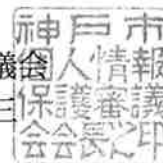 神戸市
議会
個人情報
保護審議
三
会会長之印